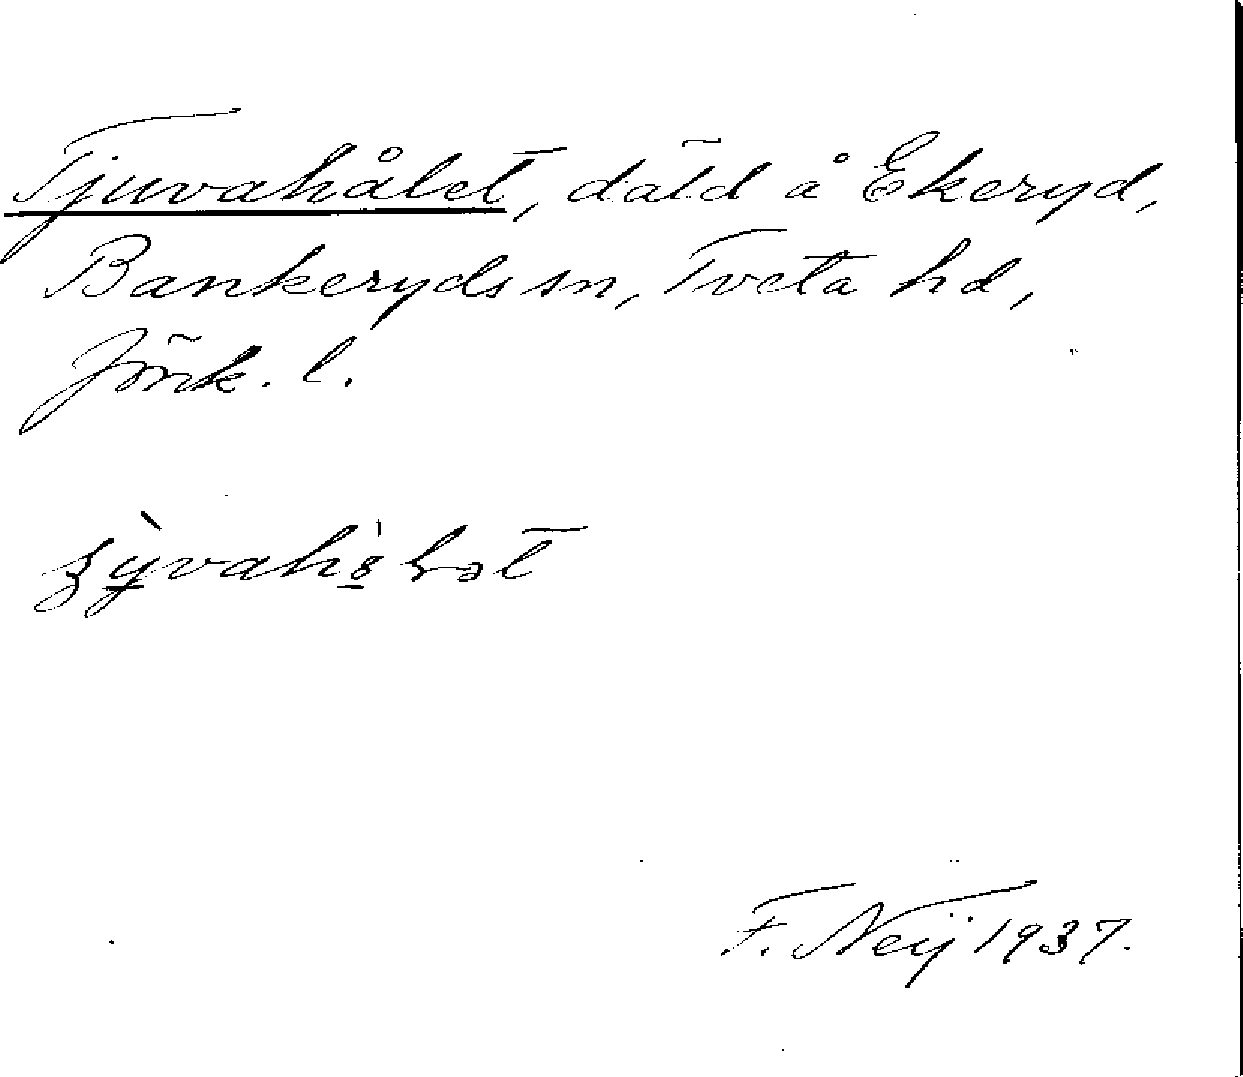 Tjuvahålet, däld å Ekeryd,
Bankeryds sn, Tveta hd,
Jönk. l.
F. Neij 1937.